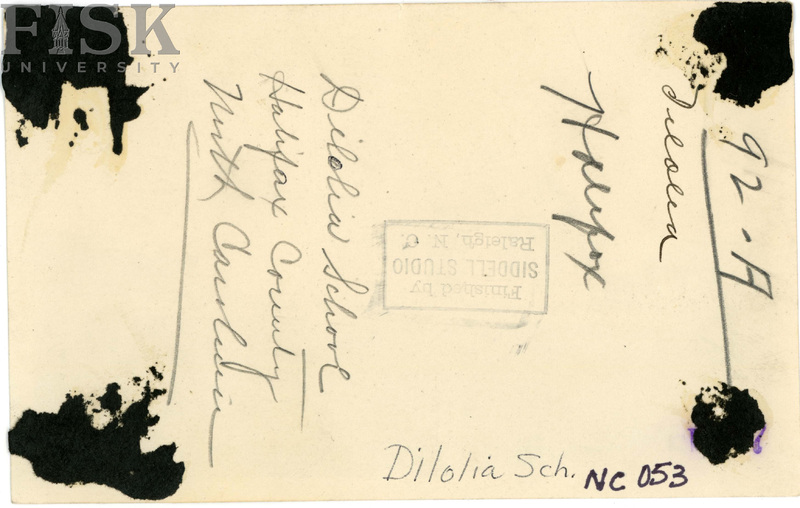 FISK
UNIVERSITY
92-A
Halifax
Dilolia School
Halifax County
North Carolina
Finished by
SIDDELL STUDIO
Raleigh, N. C.
Dilolia Sch. NC 053